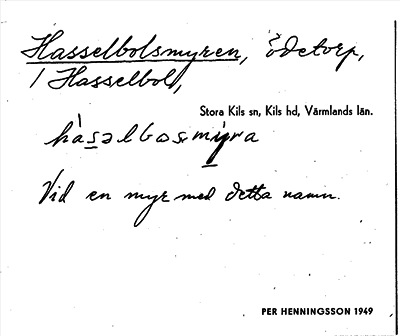 Hasselbolsmyren, ödetorp,
/ Hasselbol,
Stora Kils sn, Kils hd, Värmlands län.
hàsəlbosmýra
Vid en myr med detta namn.
PER HENNINGSSON 1949